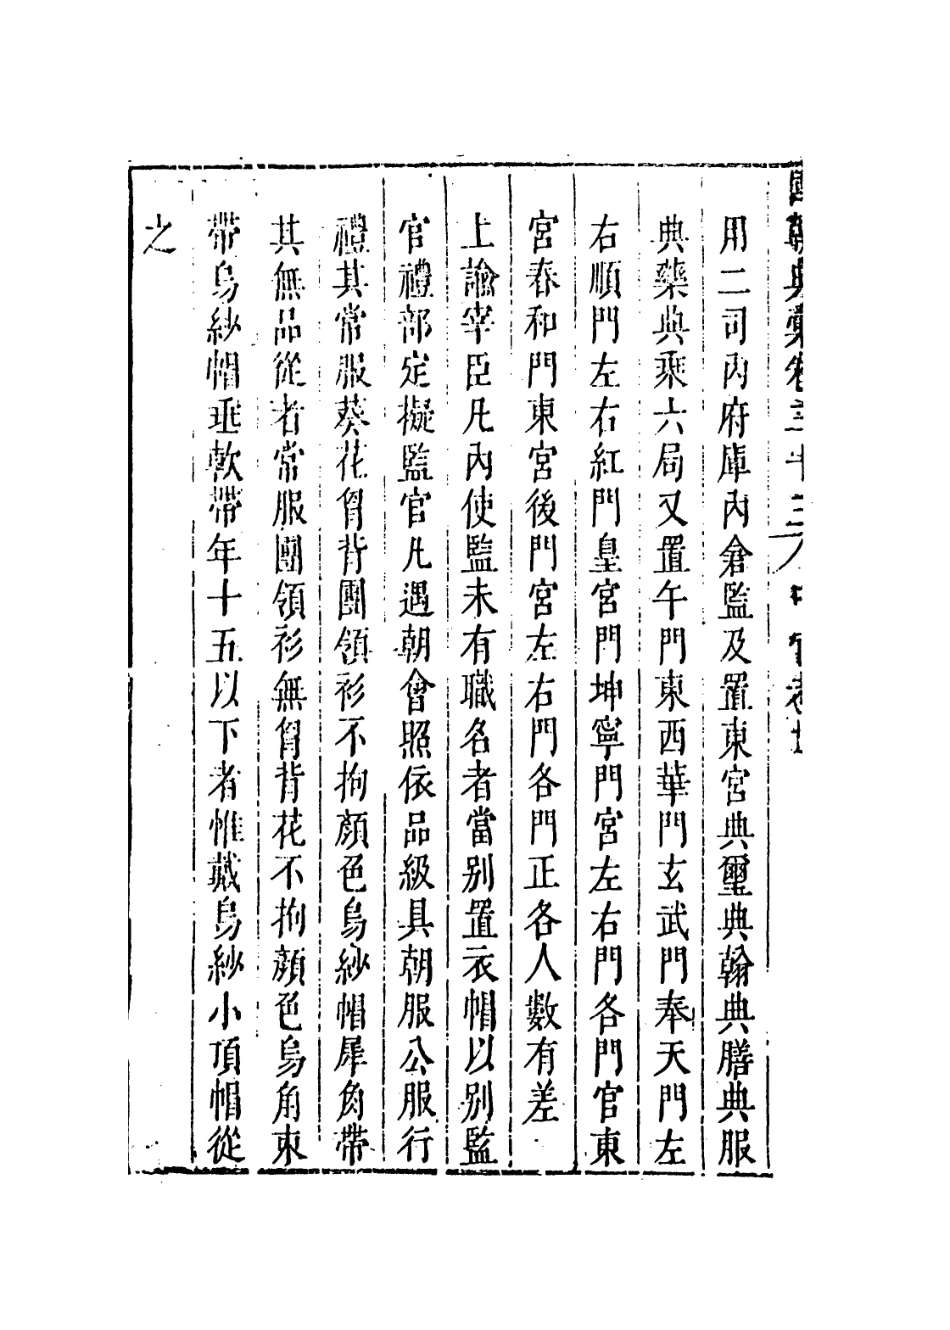 國朝典彙卷三十三 中官考上
用二司內府庫內倉監及置東宮典璽典翰典膳典服
典藥典乘六局又置午門東西華門玄武門奉天門左
右順門左右紅門皇宮門坤寧門宮左右門各門官東
宮春和門東宮後門宮左右門各門正各人數有差
上諭宰臣凡內使監未有職名者當別置衣帽以別監
官禮部定擬監官凡遇朝會照依品級具朝服公服行
禮其常服葵花胷背團領衫不拘顏色烏紗帽犀角帶
其無品從者常服團領衫無胷背花不拘顏色烏角束
帶烏紗帽垂軟帶年十五以下者惟戴烏紗小頂帽從
之